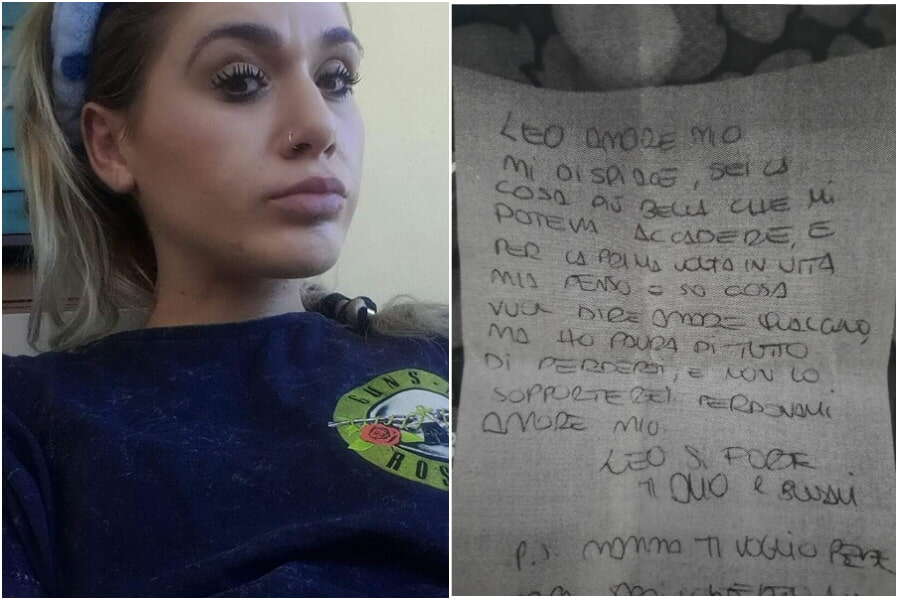 GUNS
ROS
LEO AMORE MIO
MI DISPIACE, SEI LA
COSA PIÙ BELLA CHE MI
POTEVA ACCADERE, E
PER LA PRIMA VOLTA IN VITA
MIA PENSO E SO COSA
VUOL DIRE AMARE QUALCUNO,
MA HO PAURA DI TUTTO
DI PERDERTI, E NON LO
SOPPORTEREI. PERDONAMI
AMORE MIO.
LEO SI FORTE
TI AMO E
P.S. MAMMA TI VOGLIO BENE